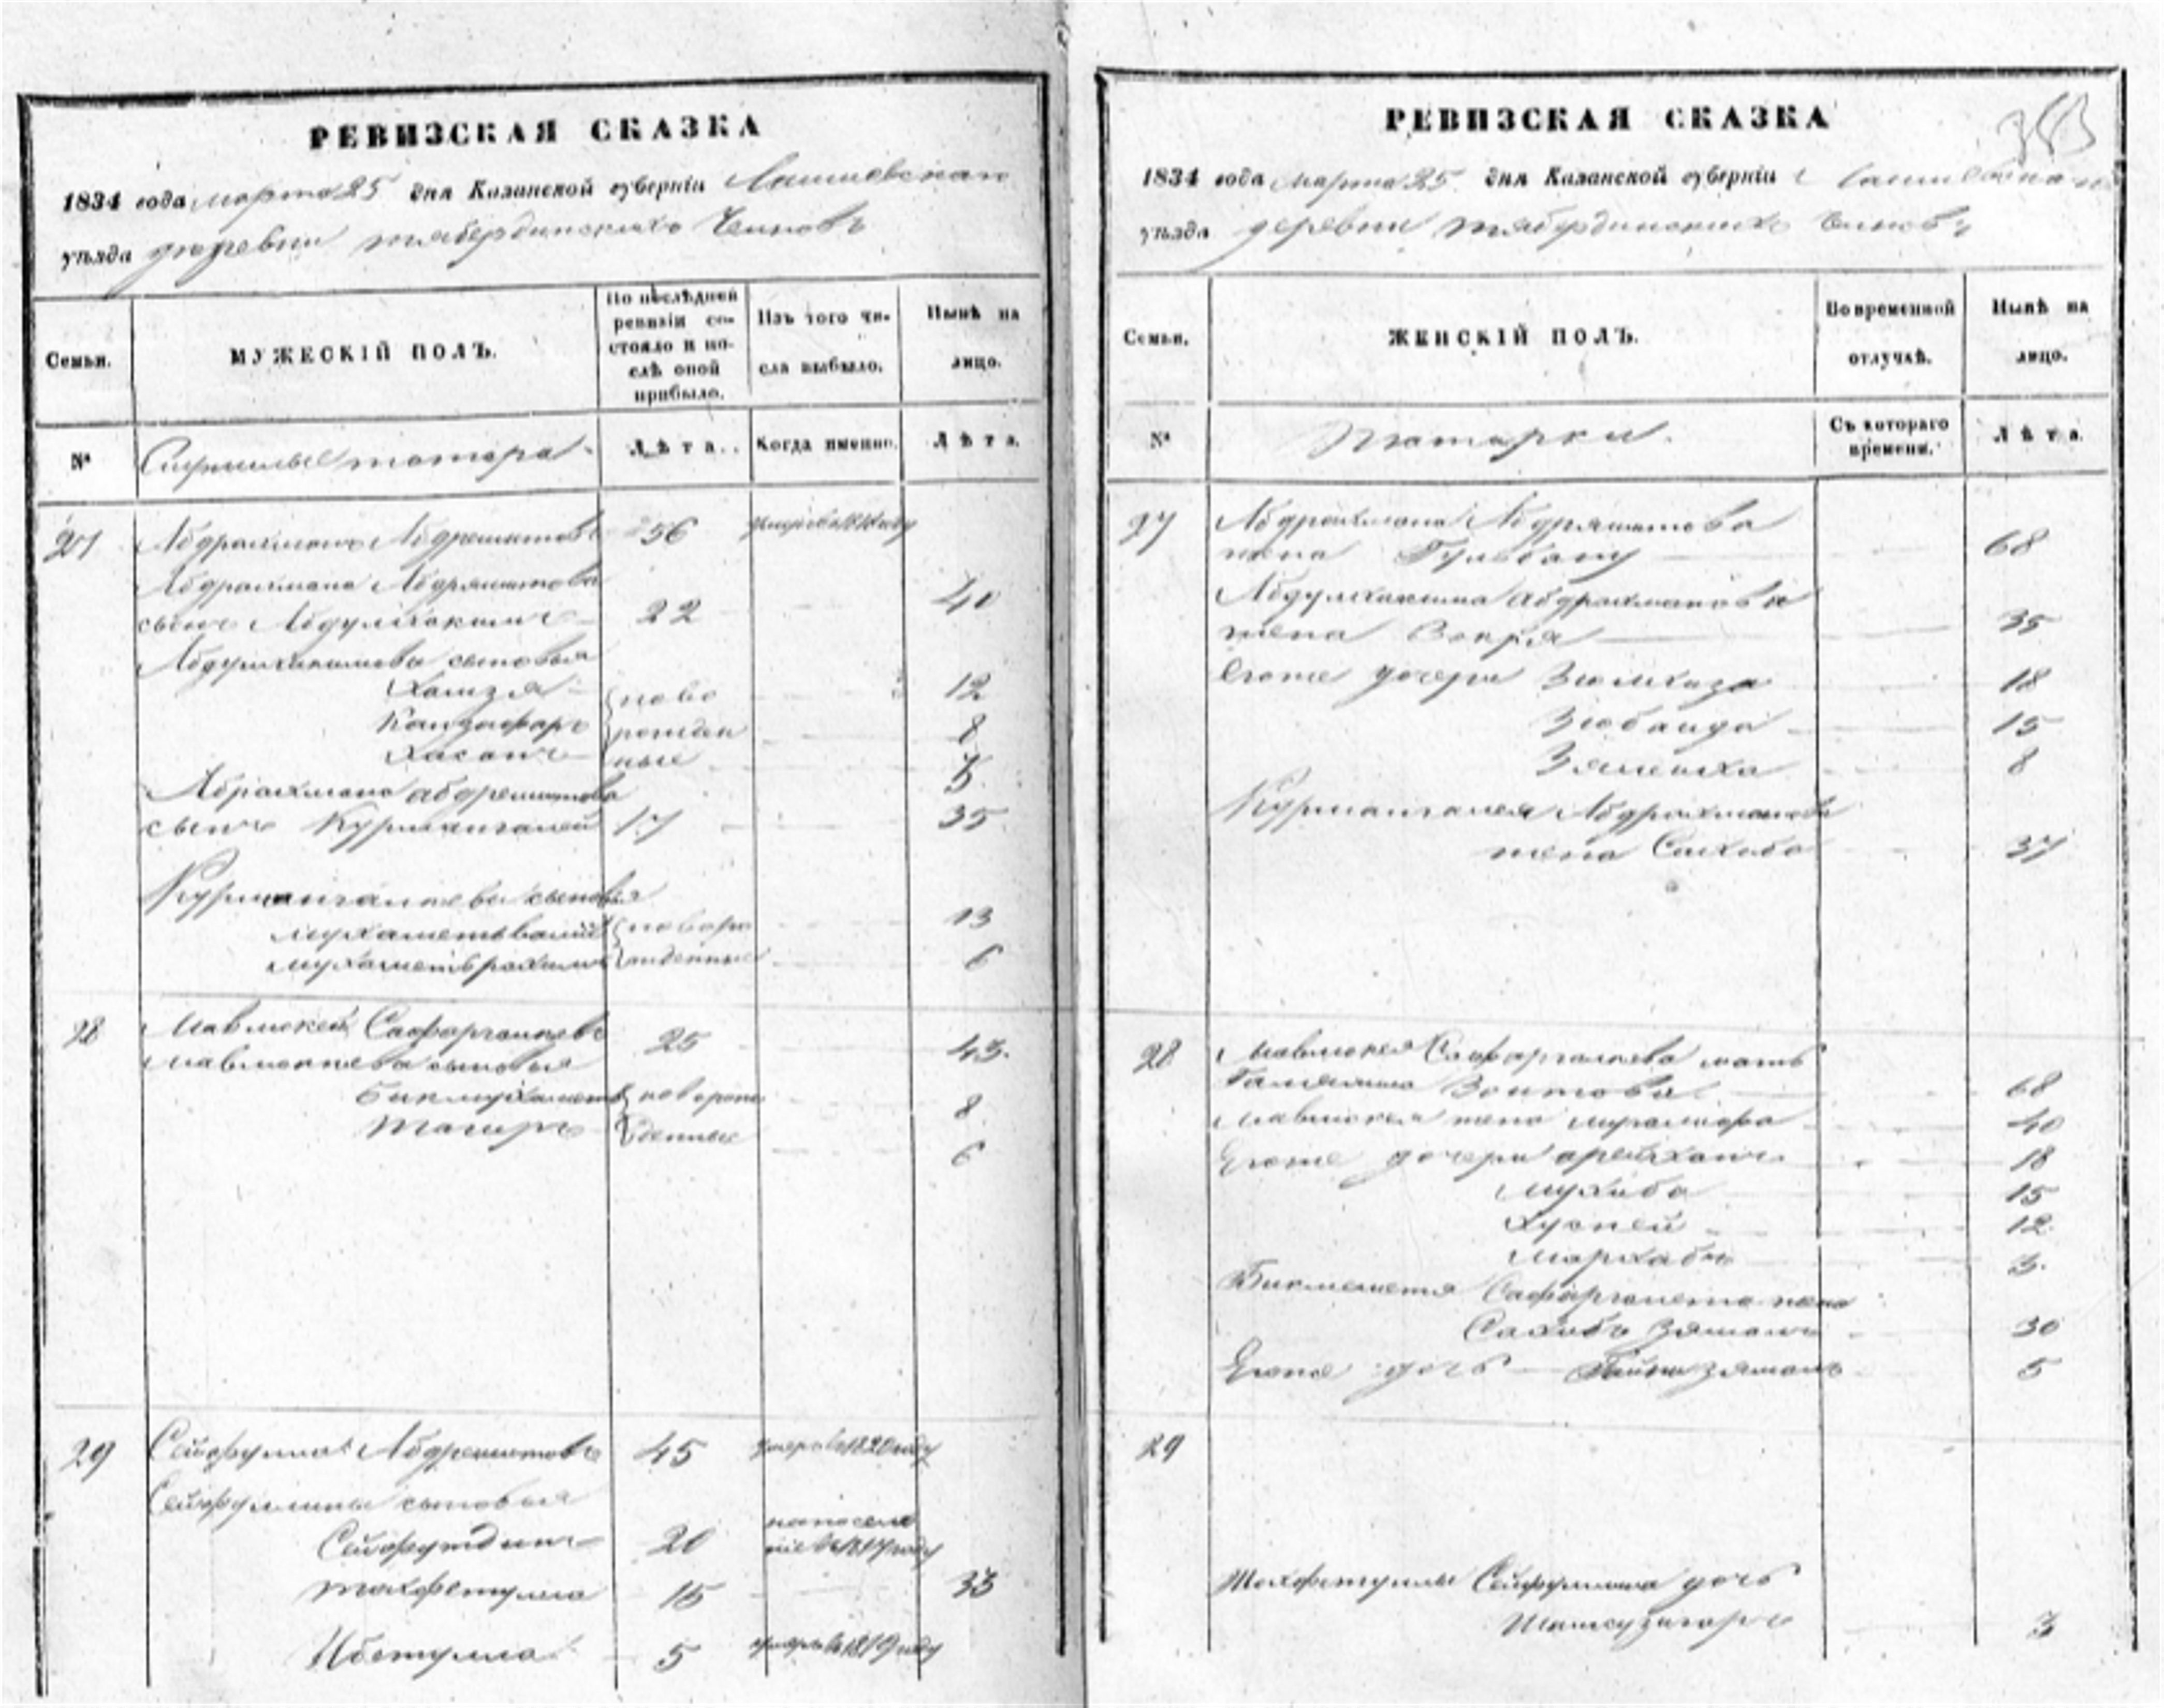 РЕВИЗСКАЯ СКАЗКА
1834 года марта 25 дня Казанской губерніи Лаишевскаго
уѣзда деревни тябердинскихъ Челновъ
Семьи.
МУЖЕСКІЙ ПОЛЪ.
По послѣдней ревизіи состояло и послѣ оной прибыло.
Изъ того числа выбыло.
Нынѣ на лицо.
№
татара
Лѣта.
Когда именно.
Лѣта.
27 Абдрахманъ Абдрешитовъ 56
Абдрахмана Абдряшитова
сынъ Абдулхакимъ 22 40
Абдулхакимова сыновья
Хамзя ново 12
рожден 8
Хасанъ ные
Абрахмана абдрешитова
сынъ Курмангалей 17 35
Курмангалеева сыновья
мухаметвалій новоро 13
мухаметрахимъ жденные 6
28 Мавлюкей Сафаргалеевъ 25 43.
мавлюкеева сыновья
Бикмухаметъ новорож 8
Тагиръ денные 6
29 Сейфулла Абдрешитовъ 45 умеръ в 1820 году
Сейфуллины сыновья
Сейфутдинъ 20
тохфетулла 15 33
Ибетулла 5 умеръ в 1819 году
РЕВИЗСКАЯ СКАЗКА
1834 года марта 25 дня Казанской губерніи Лаишевскаго
уѣзда деревни тябердинскихъ Челновъ
Семьи.
ЖЕНСКІЙ ПОЛЪ.
Во временной отлучкѣ.
Нынѣ на лицо.
№
Татарки.
Съ котораго времени.
Лѣта.
27 Абдрахмана Абдряшитова
жена Гульбану 68
Абдулхакима абдрахманова
жена 35
Егоже дочери 18
Зюбаида 15
8
Курмангалея Абдрахманова
жена Сахиба 37
28 Мавлюкея Сафаргалеева мать
68
мавлюкея жена 40
Егоже дочери 18
Мухиба 15
Хусней 12
3.
Сафаргалеева жена
Сахибъ Зяманъ 30
Егоже дочь 5
29
Тохфетуллы Сейфуллина дочь
3